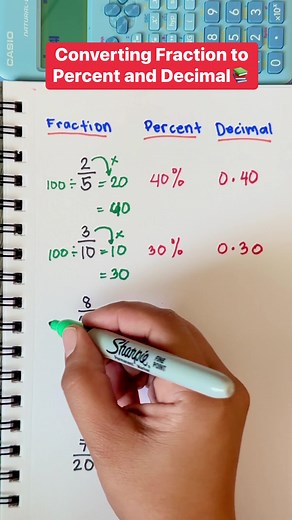 CASIO
Converting Fraction to
Percent and Decimal📚
Fraction Percent Decimal
100 ÷ 2/5 = 20 × 40% 0.40
= 40
100 ÷ 3/10 = 10 × 30% 0.30
= 30
8
Sharpie FINE POINT
7/20